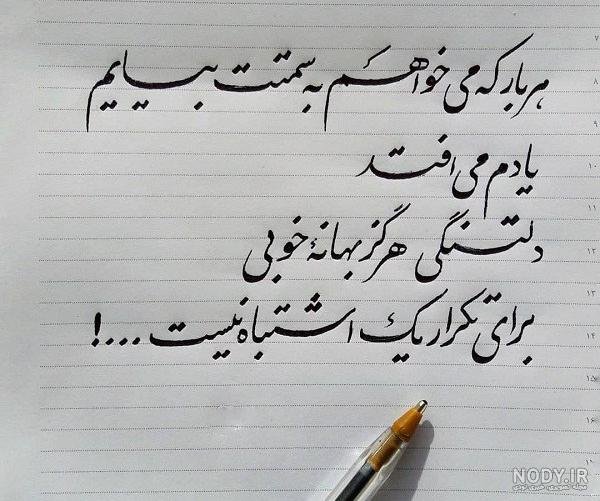 هر بار که می خواهم به سمتت بیایم
یادم می افتد
دلتنگی هرگز بهانهٔ خوبی
برای تکرار یک اشتباه نیست ...!
۷
۸
۹
۱۰
۱۱
۱۲
۱۳
۱۴
۱۵
۱۶
NODY.IR